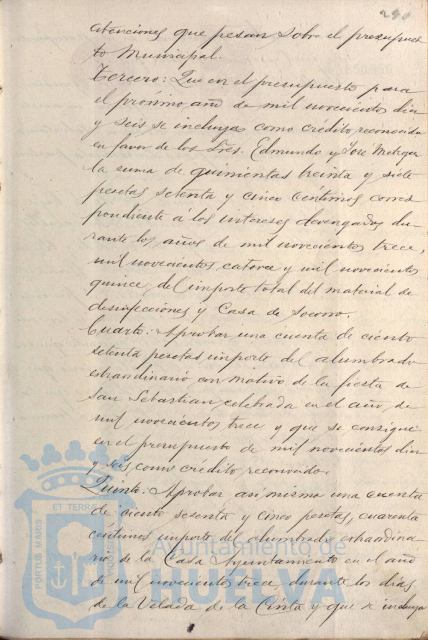 290
atenciones que pesan sobre el presupues
to Municipal.
Tercero: Que en el presupuesto para
el próximo año de mil novecientos diez
y seis se incluya como crédito reconocido
en favor de los Sres. Edmundo y José Metzger
la suma de quinientas treinta y siete
pesetas setenta y cinco céntimos corres
pondiente a los intereses devengados du
rante los años de mil novecientos trece,
mil novecientos catorce y mil novecientos
quince, del importe total del material de
desinfecciones y Casa de Socorro.
Cuarto: Aprobar una cuenta de ciento
setenta pesetas importe del alumbrado
extraordinario con motivo de la fiesta de
San Sebastian celebrada en el año de
mil novecientos trece y que se consigne
en el presupuesto de mil novecientos diez
y seis como crédito reconocido.
Quinto: Aprobar asi mismo una cuenta
de ciento setenta y cinco pesetas, cuarenta
centimos importe del alumbrado extraordina
rio de la Casa Ayuntamiento en el año
de mil novecientos trece, durante los dias
de la Velada de la Cinta y que se incluya
PORTUS MARIS ET TERRAE
Ayuntamiento de
HUELVA